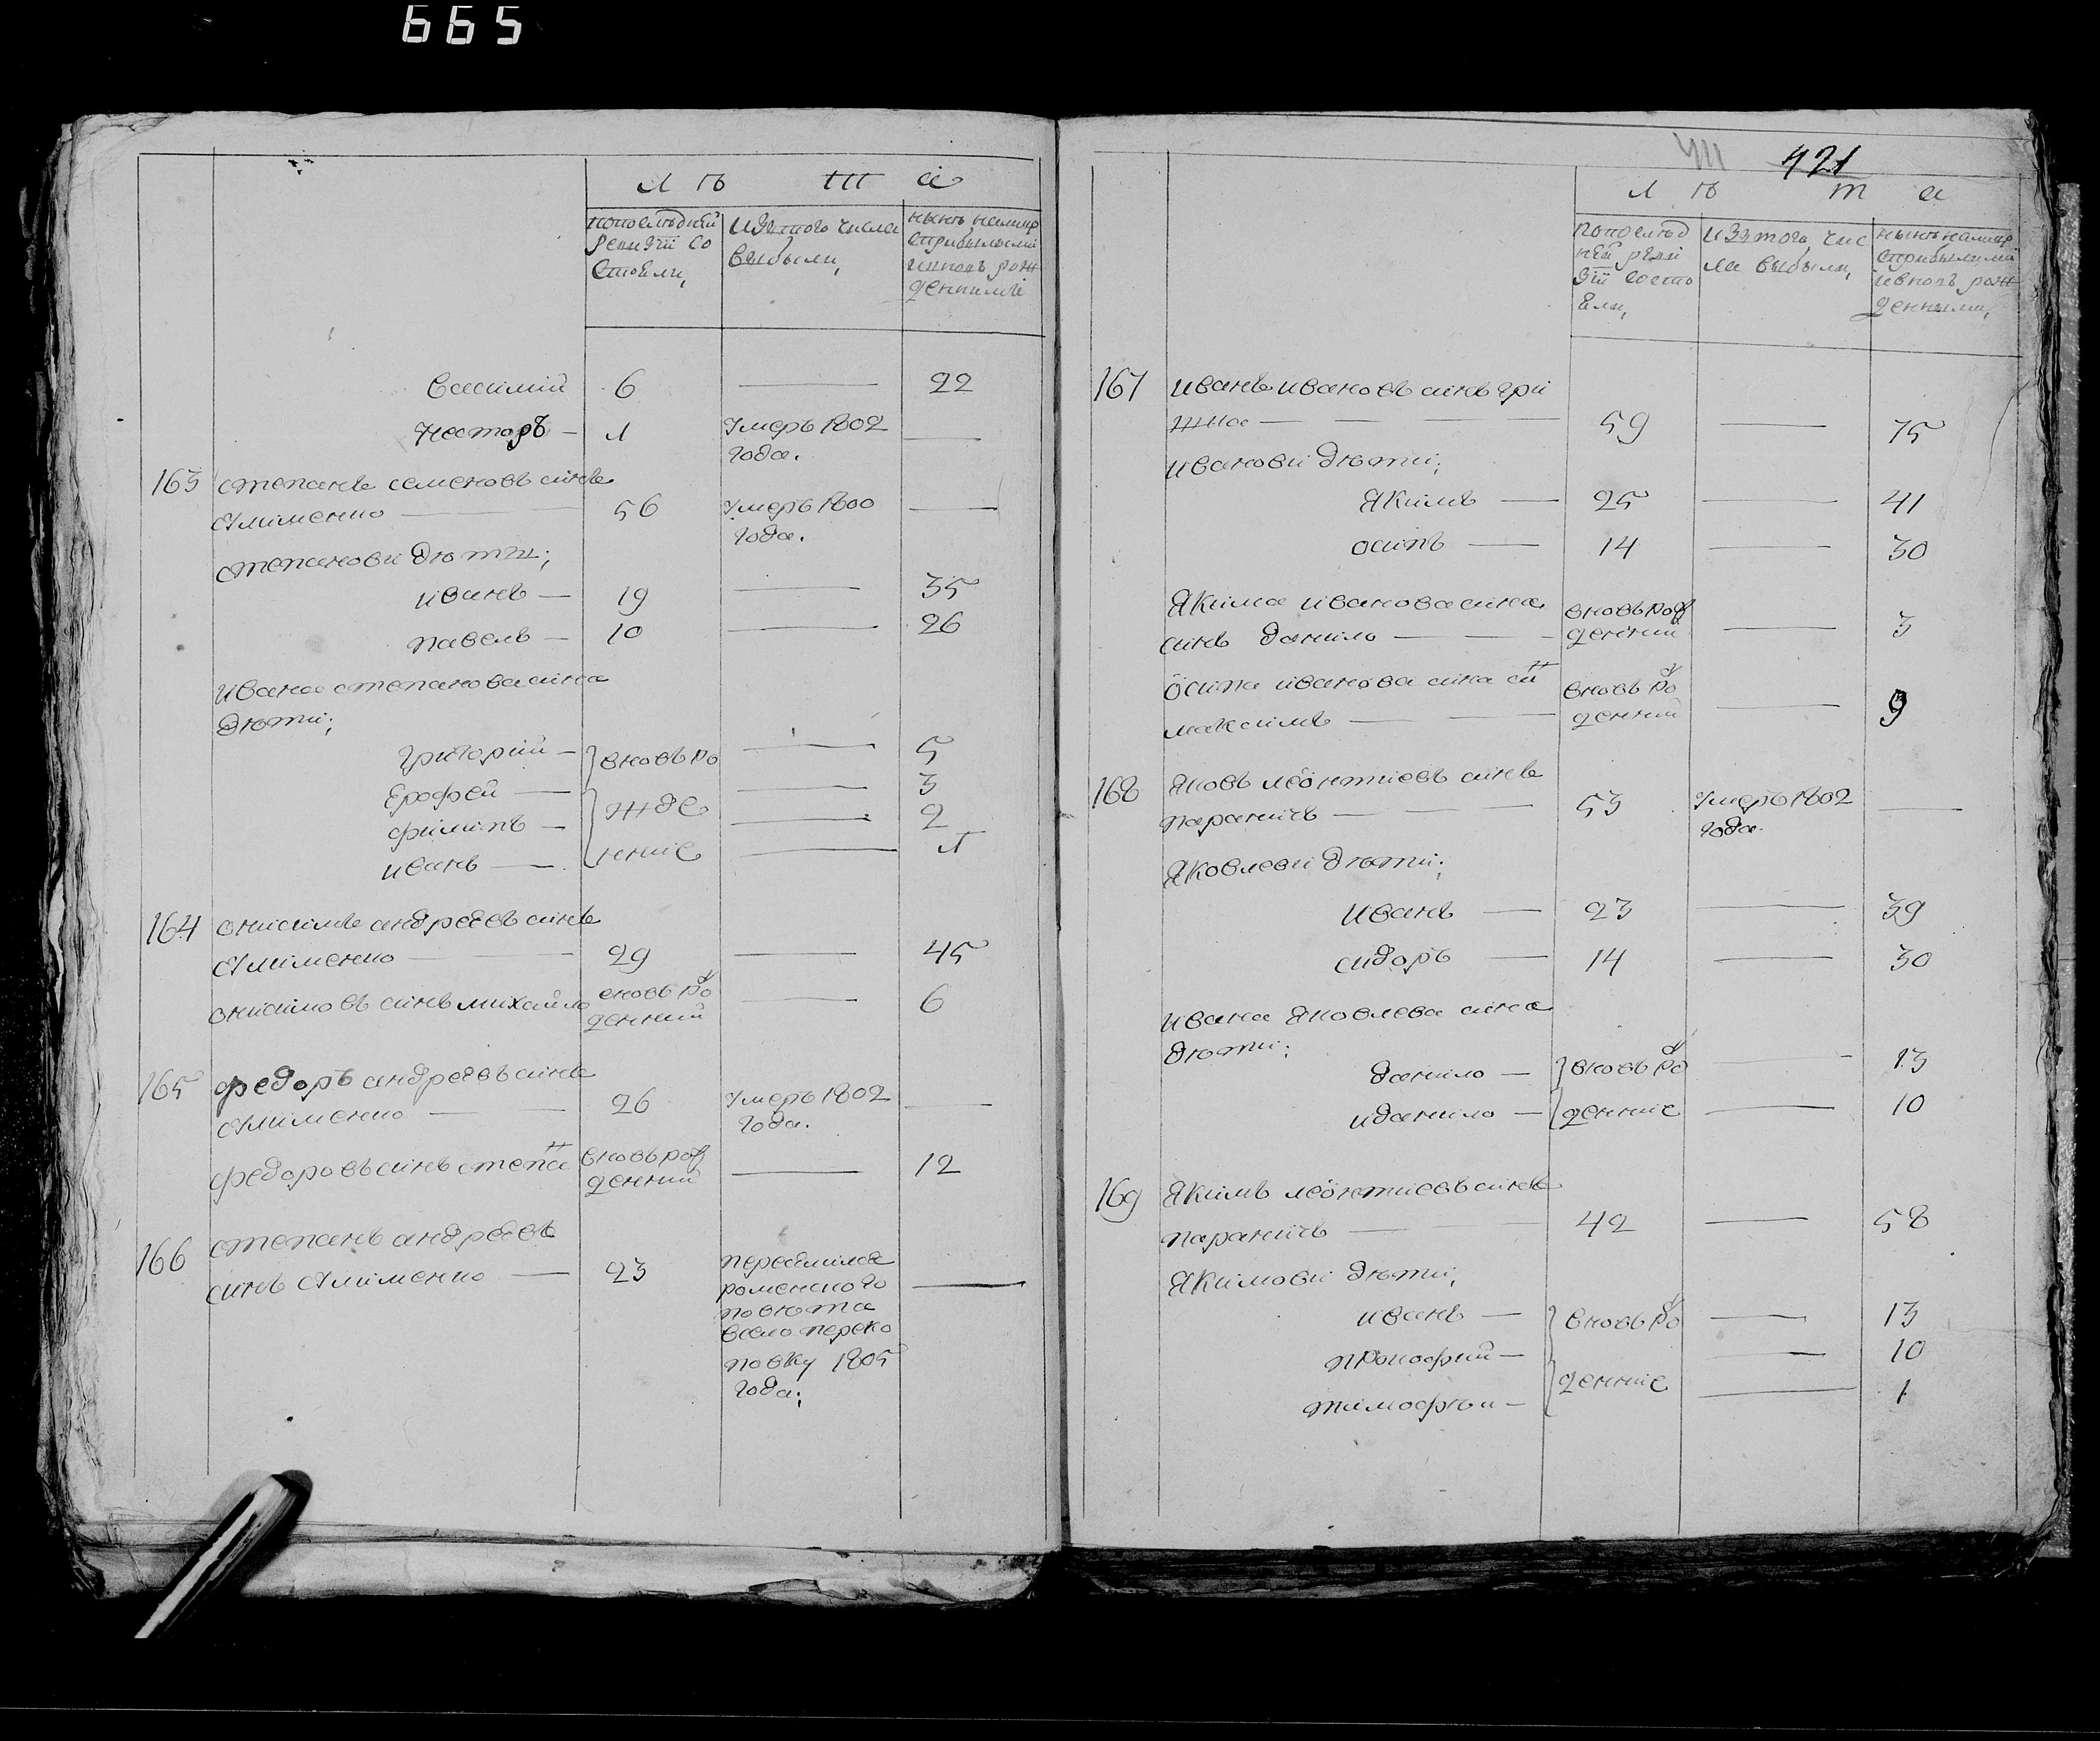 665
Л Ѣ Т А
попослѣдней
ревизіи со
стояли,
изтого числа
выбыли,
нынѣ налицо
сприбылыми
ивновь рож
денными
Василий 6 — 22
Несторъ — 1 Умеръ 1802 —
года.
163 Степанъ Семеновъ синъ
Климченко — 56 Умеръ 1800 —
года.
Степанови дѣти;
Иванъ — 19 — 35
Павелъ — 10 — 26
Ивана Степанова сина
дѣти;
Григорій — вновъ ро — 5
Ерофей — — 3
жде
Филипъ — — 2
Иванъ — нніе — 1
164 Онисимъ Андреевъ синъ
Климченко — 29 — 45
Онисимовъ синъ Михайло вновъ рож — 6
денний
165 Федоръ Андреевъ синъ
Климченко — 26 Умеръ 1802 —
года.
Федоровъ синъ Степан вновъ рож — 12
денний
166 Степанъ Андреевъ
синъ Климченко — 23 переселился —
роменского
повѣта
всело переко
повку 1805
года;
421
Л Ѣ Т А
попослѣд
ней реви
зіи состо
яли,
изтого чис
ла выбыли,
нынѣ налицо
сприбылыми
ивновь рож
денными,
167 Иванъ Ивановъ синъ Гри
жка — 59 — 75
Иванови дѣти;
Якимъ — 25 — 41
Осипъ — 14 — 30
Якима Иванова сина вновъ рож
синъ Данило — денний — 3
Осипа Иванова сина син вновъ рож
Максимъ — денний — 9
168 Яковъ Леонтиевъ синъ
Параничъ — 53 Умеръ 1802 —
года.
Яковлеви дѣти;
Иванъ — 23 — 39
Сидоръ — 14 — 30
Ивана Яковлева сина
дѣти;
Данило — вновъ рож — 13
иданило — денние — 10
169 Якимъ Леонтиевъ синъ
Параничъ — 42 — 58
Якимови дѣти;
Иванъ — вновъ рож — 13
Прокофий — — 10
денние
Тимофѣй — — 1